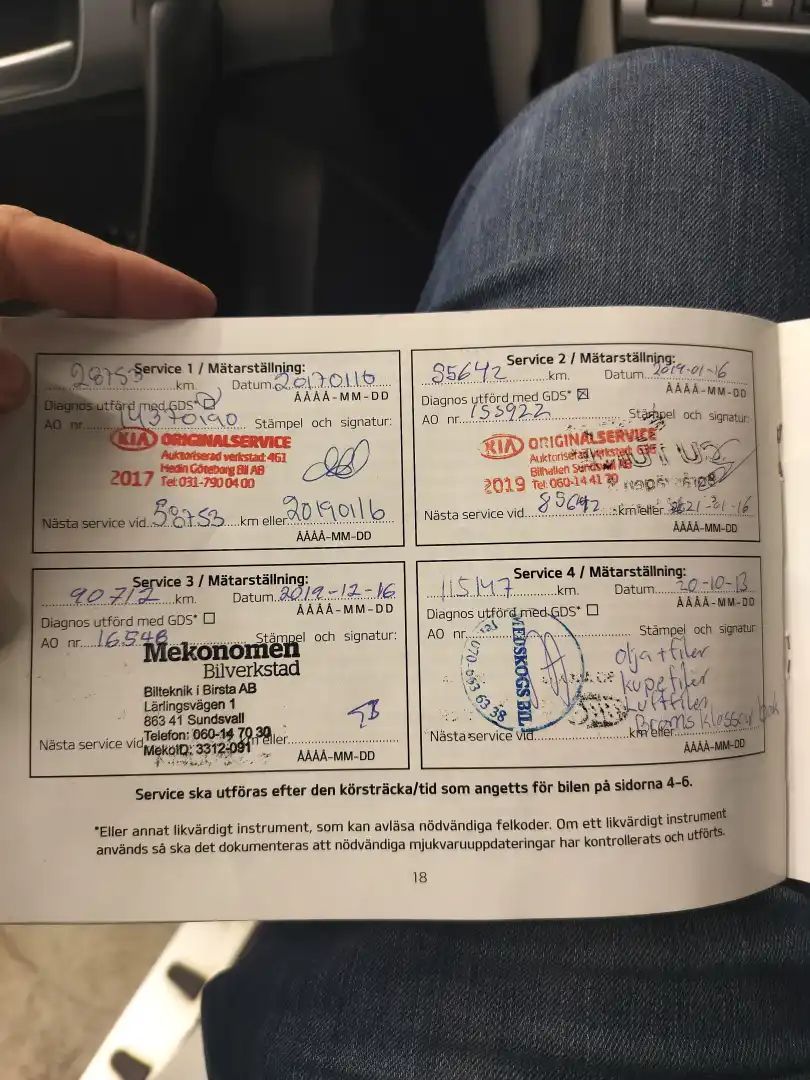 Service 1 / Mätarställning:
28753 km. Datum 20170116
ÅÅÅÅ-MM-DD
Diagnos utförd med GDS*
AO nr. 14370190 Stämpel och signatur:
KIA ORIGINALSERVICE
Auktoriserad verkstad: 461
Hedin Göteborg Bil AB
2017 Tel: 031-790 04 00
Nästa service vid 58753 km eller 20190116
ÅÅÅÅ-MM-DD
Service 2 / Mätarställning:
85642 km. Datum 2019-01-16
ÅÅÅÅ-MM-DD
Diagnos utförd med GDS* ☒
AO nr. 155922 Stämpel och signatur:
KIA ORIGINALSERVICE
Auktoriserad verkstad:
Bilhallen Sundsvall AB
2019 Tel: 060-14 41 70
Nästa service vid 85642 km eller 2021-01-16
ÅÅÅÅ-MM-DD
Service 3 / Mätarställning:
90712 km. Datum 2019-12-16
ÅÅÅÅ-MM-DD
Diagnos utförd med GDS* ☐
AO nr. 16548 Stämpel och signatur:
Mekonomen
Bilverkstad
Bilteknik i Birsta AB
Lärlingsvägen 1
863 41 Sundsvall
Telefon: 060-14 70 30
Nästa service vid km eller
MekoID: 3312-091
ÅÅÅÅ-MM-DD
Service 4 / Mätarställning:
115147 km. Datum 20-10-13
ÅÅÅÅ-MM-DD
Diagnos utförd med GDS* ☐
AO nr. Stämpel och signatur
MEDSKOGS BIL
Tel 070-693 63 38
olja + filer
kupefiler
Luftfilen
Broms klossar bak
Nästa service vid km eller
ÅÅÅÅ-MM-DD
Service ska utföras efter den körsträcka/tid som angetts för bilen på sidorna 4-6.
*Eller annat likvärdigt instrument, som kan avläsa nödvändiga felkoder. Om ett likvärdigt instrument
används så ska det dokumenteras att nödvändiga mjukvaruuppdateringar har kontrollerats och utförts.
18